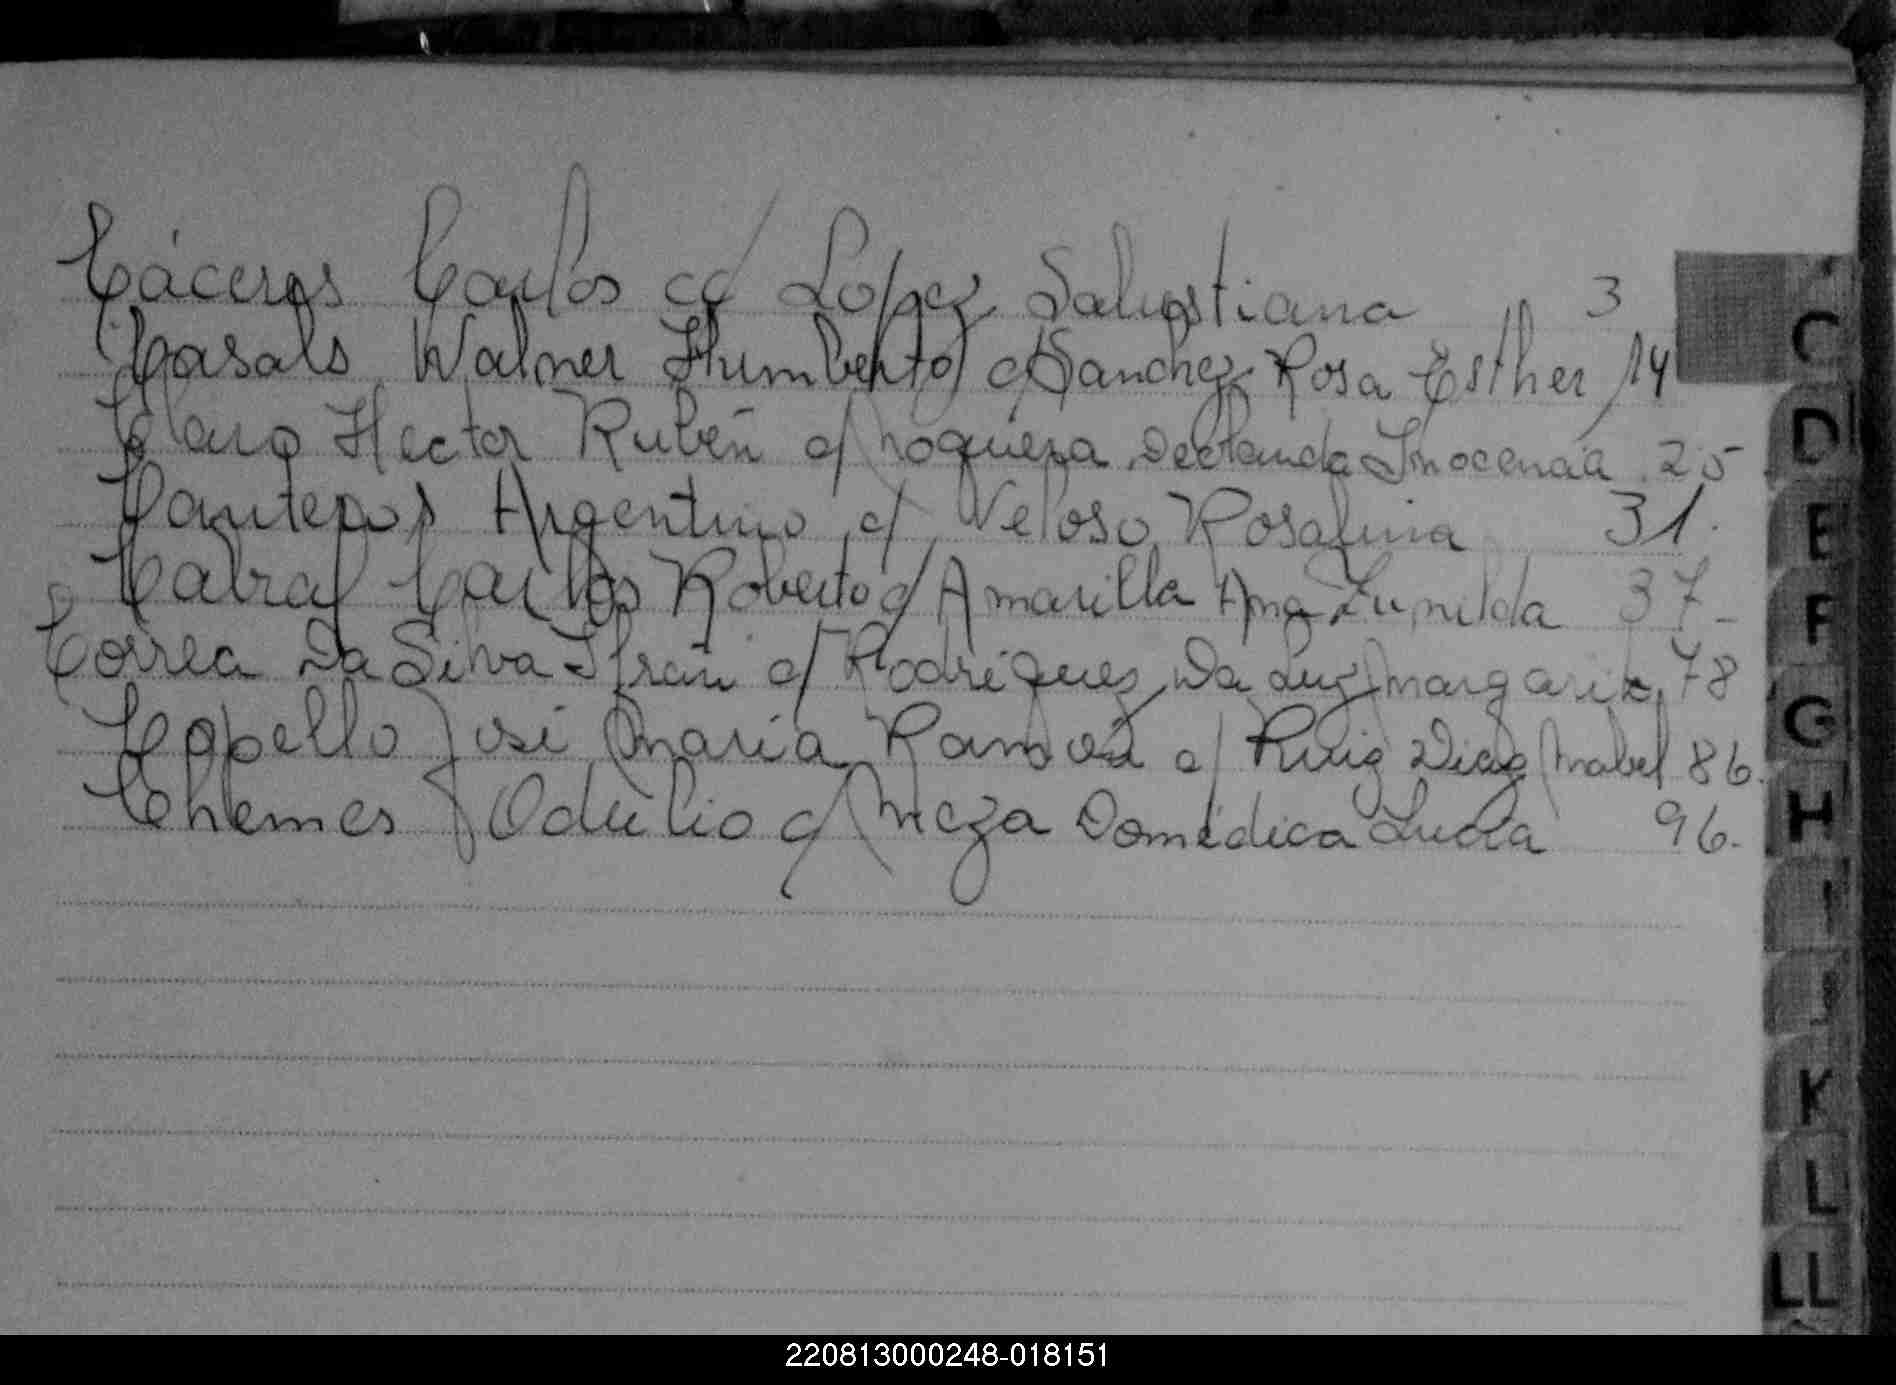 Cáceres Carlos c/ Lopez Salustiana 3
Casals Walner Humberto c/ Sanchez Rosa Esther 14
Claro Hector Rubén c/ Noguera Deolanda Inocencia 25
Canteros Argentino c/ Veloso Rosalina 31.
Cabral Carlos Roberto c/ Amarilla Ana Zunilda 37-
Correa Da Silva Ifrain c/ Rodriguez Da Luz Margarita 78
Copello José María Ramón c/ Ruiz Diaz Mabel 86.
Chemes Odulio c/ Meza Domedica Lucia 96.
C
D
E
F
G
H
I
J
K
L
LL
220813000248-018151